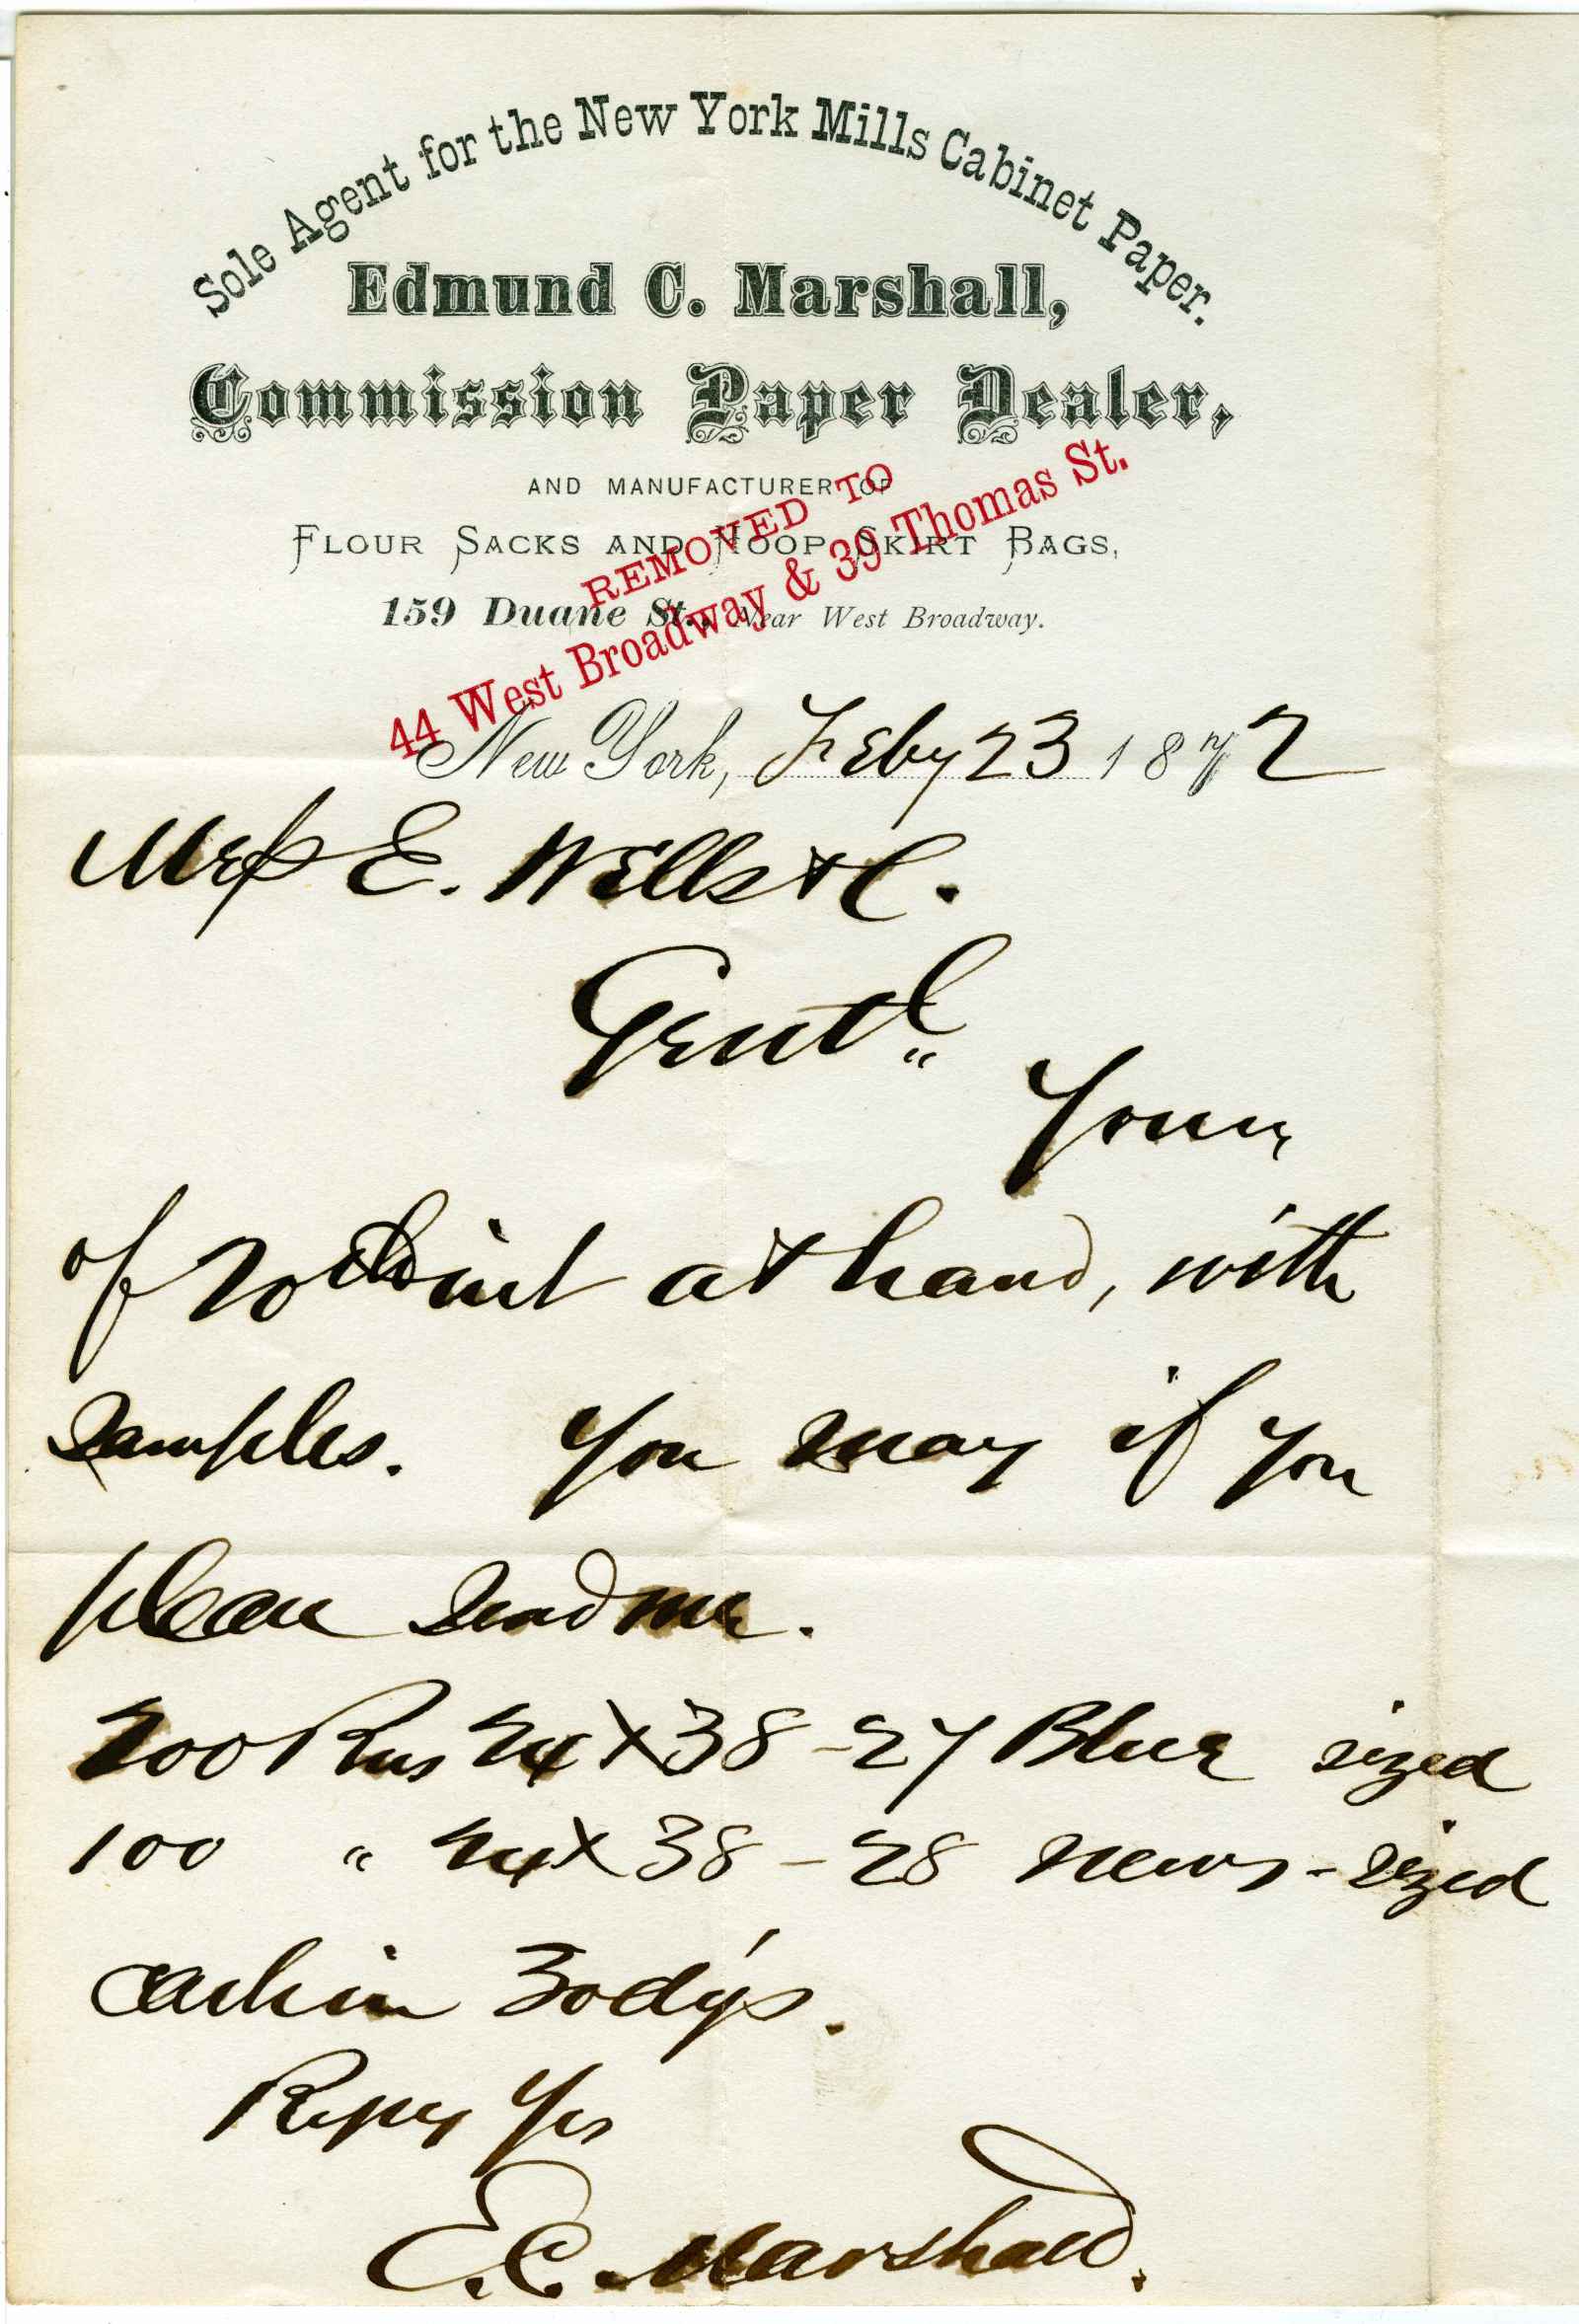 Sole Agent for the New York Mills Cabinet Paper.
Edmund C. Marshall,
Commission Paper Dealer,
AND MANUFACTURER OF
FLOUR SACKS AND HOOP SKIRT BAGS,
159 Duane St., Near West Broadway.
REMOVED TO
44 West Broadway & 39 Thomas St.
New York, Feby 23 1872
E. Wells & C.
Gentl"
Yours
of 20th inst at hand, with
Samples. You may if you
please Send me.
200 Rms 24 X 38 - 27 Blue sized
100 " 24 X 38 - 28 news - sized
cash in 30 dys.
Respy Yrs
E. C. Marshall.